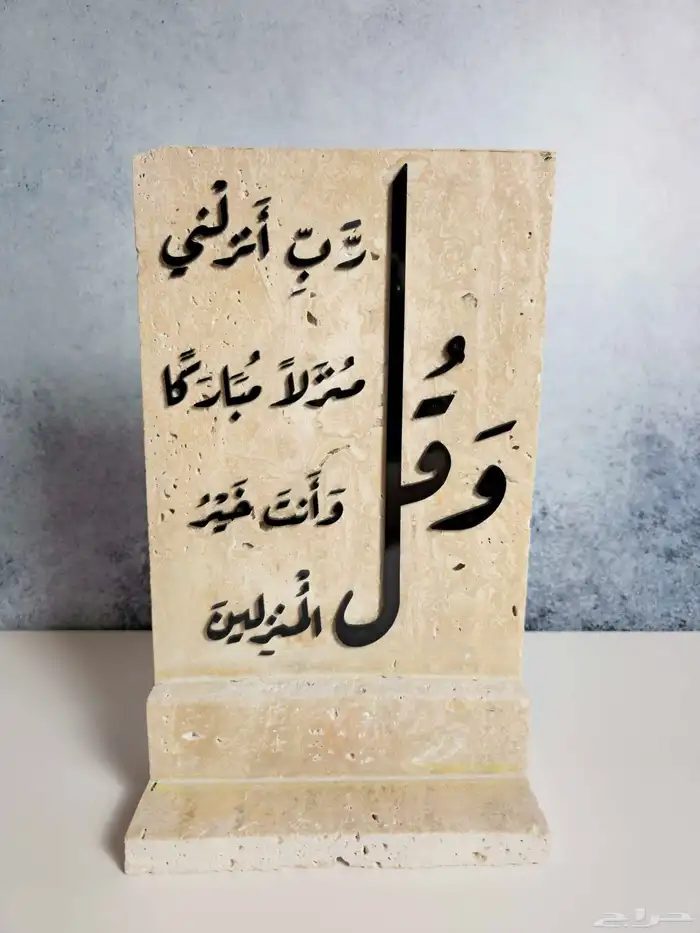 وَقُل
رَّبِّ أَنزلْني
مُنزَلاً مُبَارَكًا
وَأَنتَ خَيْرُ
الْمُنزِلينَ
حراج